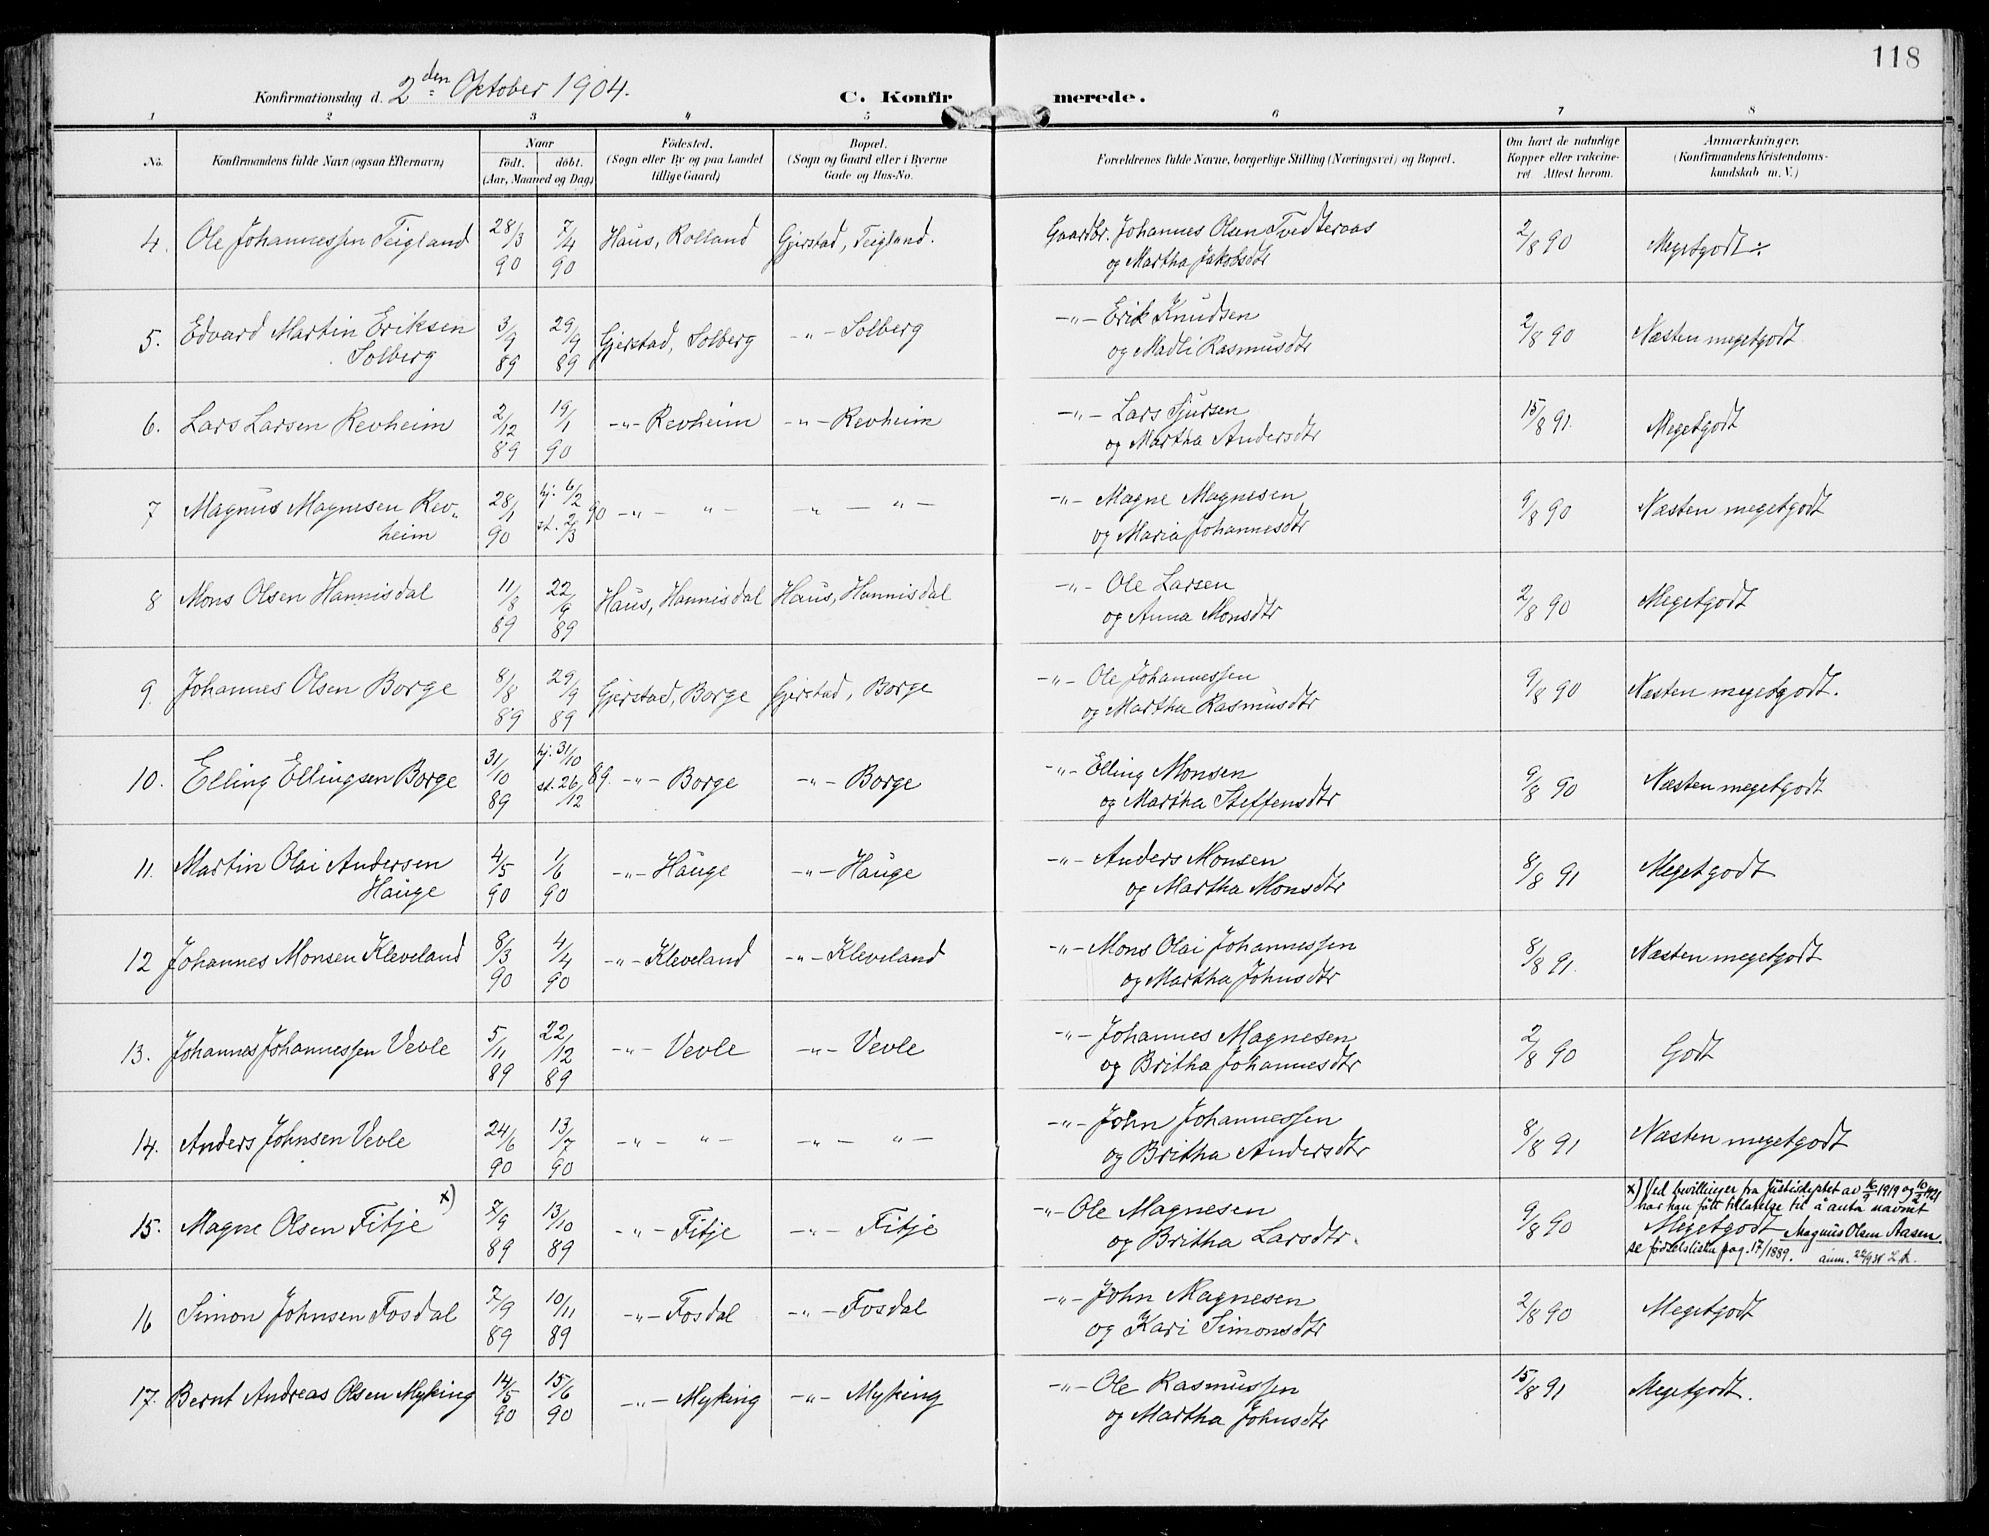 118
Konfirmationsdag d. 2den Oktober 1904.
C. Konfirmerede.
1 2 3 4 5 6 7 8
No. Konfirmandens fulde Navn (ogsaa Efternavn) Naar født. døbt. (Aar, Maaned og Dag) Fødested. (Sogn eller By og paa Landet tillige Gaard) Bopæl. (Sogn og Gaard eller i Byerne Gade og Hus-No. Forældrenes fulde Navne, borgerlige Stilling (Næringsvei) og Bopæl. Om havt de naturlige Kopper eller vakcineret Attest herom. Anmærkninger. (Konfirmandens Kristendomskundskab m. V.)
4. Ole Johannessen Teigland 28/3 90 7/4 90 Haus, Rolland Gjerstad, Teigland. Gaardbr. Johannes Olsen Tvedteraas 2/8 90 Megetgodt
og Martha Jakobsdtr
5. Edvard Martin Eriksen 3/9 89 29/9 89 Gjerstad, Solberg -"- Solberg -"- Erik Knudsen 2/8 90 Næsten megetgodt
Solberg og Madli Rasmusdtr
6. Lars Larsen Revheim 2/12 89 19/1 90 -"- Revheim -"- Revheim -"- Lars Sjursen 15/8 91. Megetgodt
og Martha Andersdtr
7 Magnus Magnesen Rev- 28/1 90 hj. 6/2 st. 2/3 90 -"- "- " - "- -"- Magne Magnesen 9/8 90 Næsten megetgodt
heim og Maria Johannesdtr
8 Mons Olsen Hannisdal 11/8 89 22/9 89 Haus, Hannisdal Haus, Hannisdal -"- Ole Larsen 2/8 90 Megetgodt
og Anna Monsdtr
9. Johannes Olsen Borge 8/8 89 29/9 89 Gjerstad, Borge Gjerstad, Borge -"- Ole Johannessen 9/8 90 Næsten megetgodt.
og Martha Rasmusdtr
10. Elling Ellingsen Borge 31/10 89 hj. 31/10 st. 26/12 89. -"- Borge -"- Borge -"- Elling Monsen 9/8 90 Næsten megetgodt
og Martha Steffensdtr
11. Martin Olai Andersen 4/5 90 1/6 90 -"- Hauge -"- Hauge -"- Anders Monsen 8/8 91 Megetgodt
Hauge og Martha Monsdtr
12 Johannes Monsen Kleveland 8/3 90 4/4 90 -"- Kleveland -"- Kleveland -"- Mons Olai Johannessen 8/8 91. Næsten megetgodt
og Martha Johnsdtr
13. Johannes Johannessen Vevle 5/11 89 22/12 89 -"- Vevle -"- Vevle -"- Johannes Magnesen 2/8 90 Godt
og Britha Johannesdtr
14. Anders Johnsen Vevle 24/6 90 13/7 90 -"- "- -"- "- -"- John Johannessen 8/8 91 Næsten megetgodt
og Britha Andersdtr
15. Magne Olsen Fitje x) 7/9 89 13/10 89 -"- Fitje -"- Fitje -"- Ole Magnesen 9/8 90
og Britha Larsdtr.
x) Ved bevillinger fra Justisdeptet av 16/9 1919 og 10/2 1921
har han fått tillatelse til å anta navnet
Megetgodt Magnus Olsen Aasen.
se fødselslisten pag. 17/1889. anm. 22/9 38
16 Simon Johnsen Fosdal 7/9 89 10/11 89 -"- Fosdal -"- Fosdal -"- John Magnesen 2/8 90 Megetgodt
og Kari Simonsdtr
17. Bernt Andreas Olsen Myking 14/5 90 15/6 90 -"- Myking -"- Myking -"- Ole Rasmussen 15/8 91 Megetgodt.
og Martha Johnsdtr